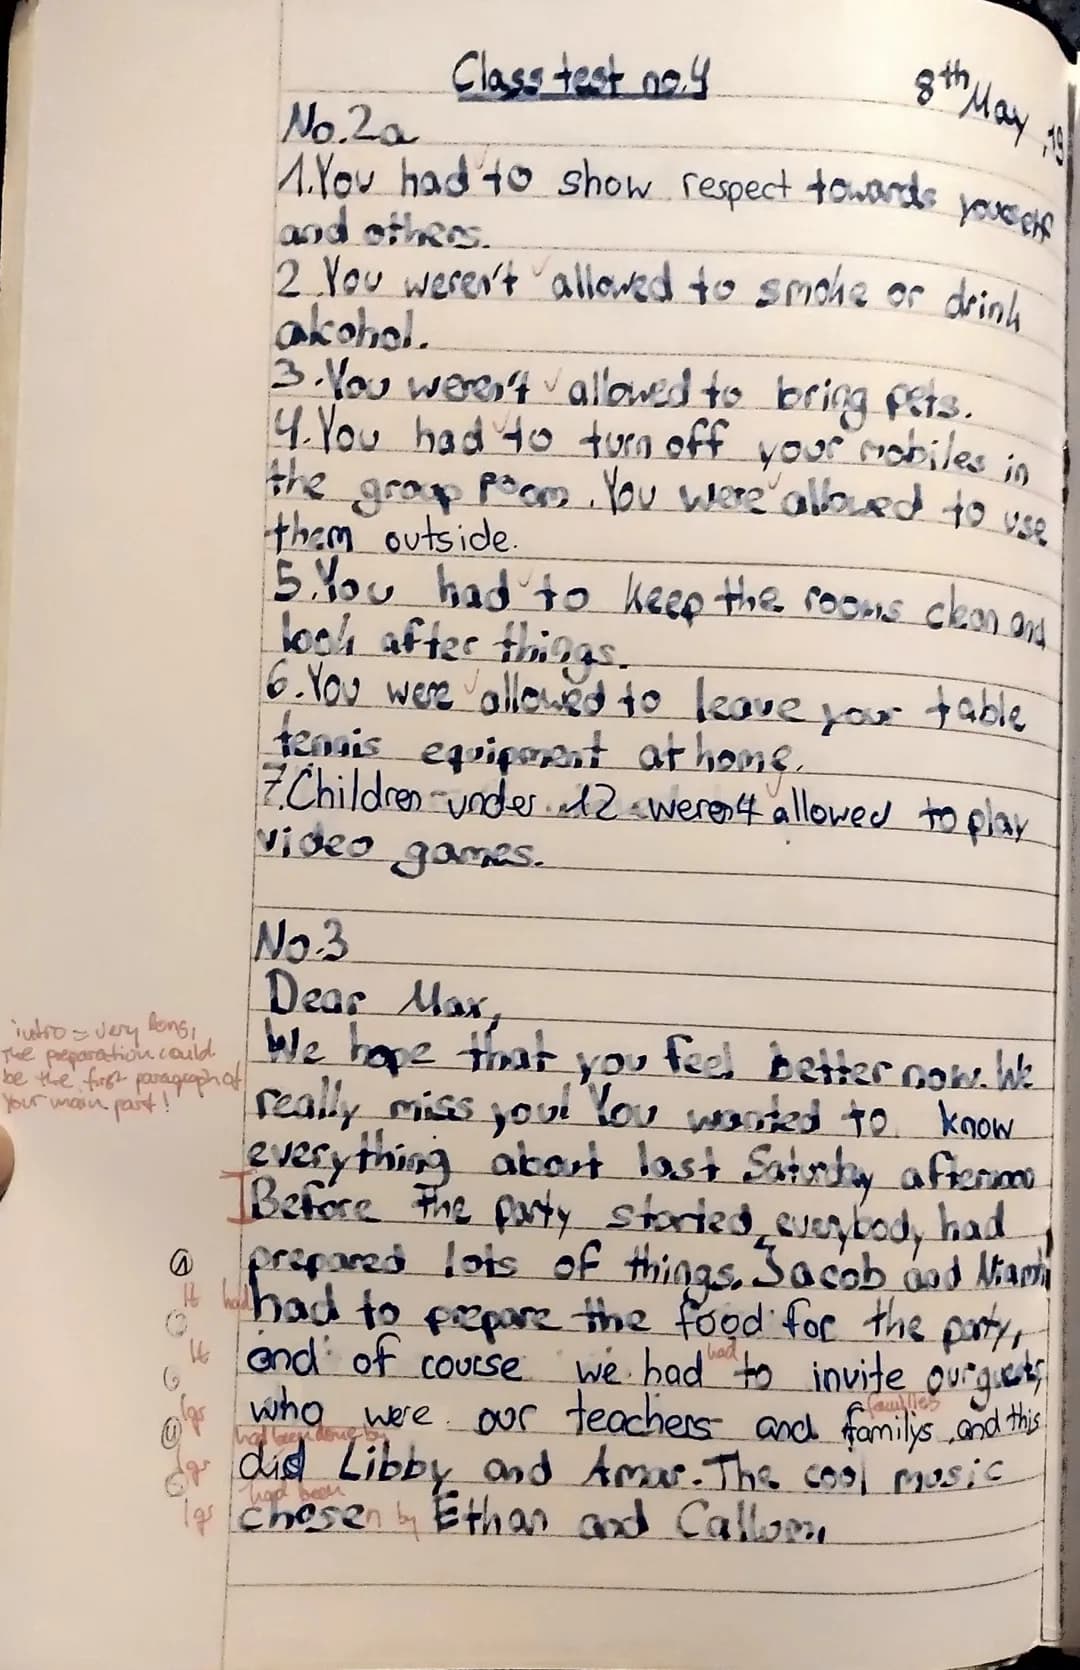 Class test no.4
8th May, 19
No.2a
1.You had to show respect towards yourself
and others.
2.You weren't allowed to smoke or drink
akohol.
3.You weren't allowed to bring pets.
4.You had to turn off your mobiles in
the group room. You were allowed to use
them outside.
5.You had to keep the rooms clean and
look after things.
6.You were allowed to leave your table
tennis equipment at home.
7.Children under 12 weren't allowed to play
video games.
No.3
Dear Max,
intro = very long,
the preparation could
be the first paragraph of
your main part!
We hope that you feel better now. We
really miss you! You wanted to know
everything about last Saturday afternoon
Before the party started, everybody had
prepared lots of things. Jacob and Niamh
had
had to prepare the food for the party,
had
and of course we had to invite our guests,
families
who were our teachers and familys, and this
had been done by
did Libby and Amar. The cool music
had been
chosen by Ethan and Callum,